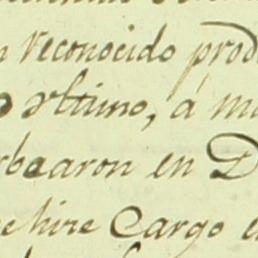 reconocido prod
ultimo, á m
rbaaron en D
e hize Cargo e